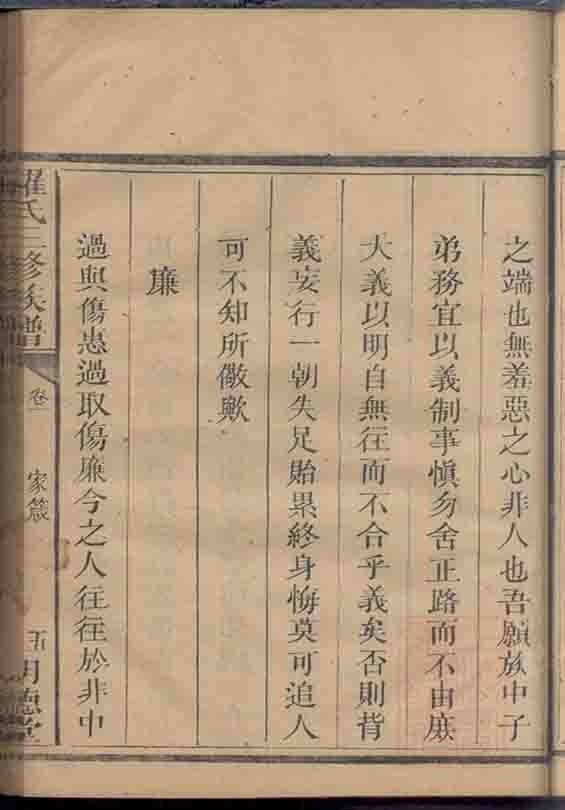 之端也無羞惡之心非人也吾願族中子
弟務宜以義制事愼勿舍正路而不由庶
大義以明自無往而不合乎義矣否則背
義妄行一朝失足貽累終身悔莫可追人
可不知所儆歟
廉
過與傷惠過取傷廉今之人往往於非中
羅氏三修族譜
卷
家箴
五
明德堂